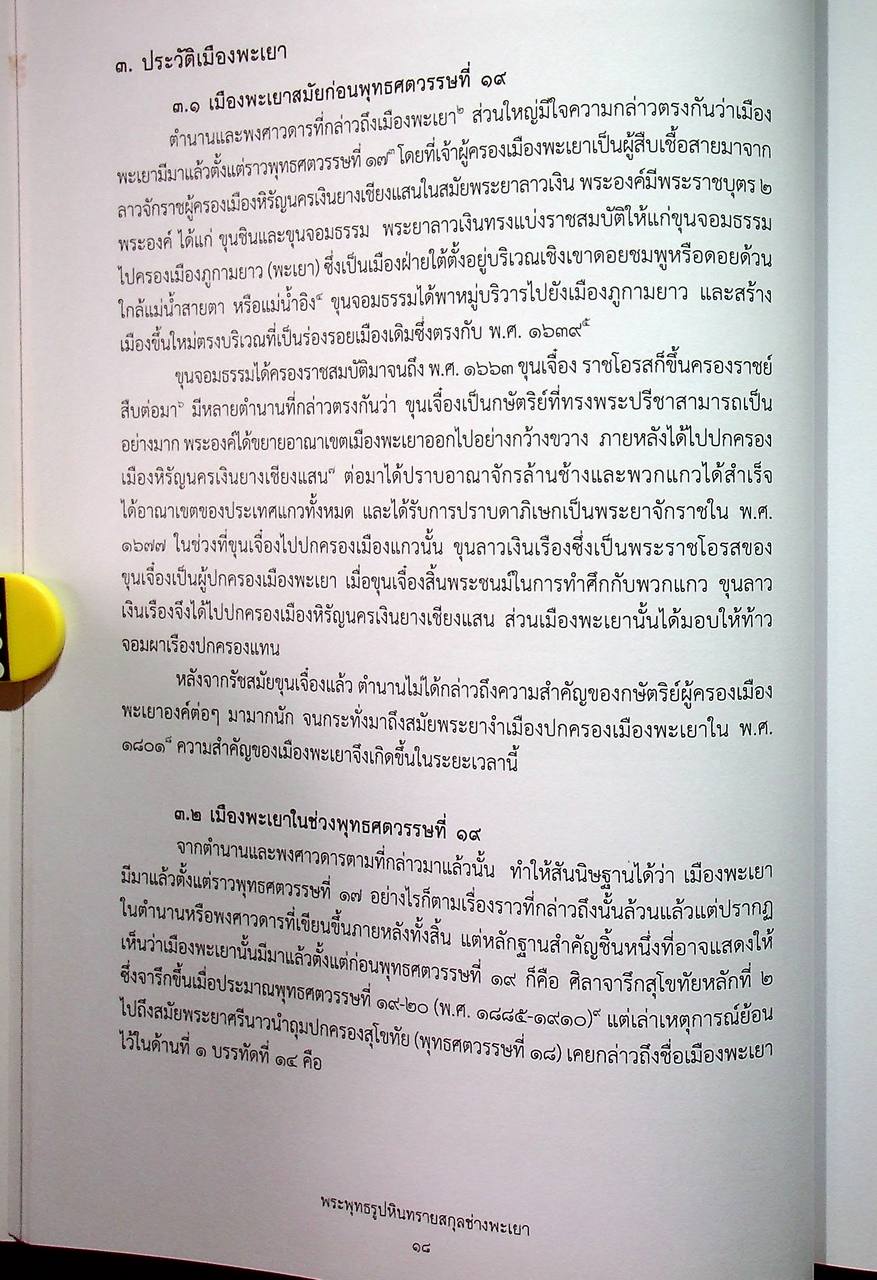 ๓. ประวัติเมืองพะเยา
๓.๑ เมืองพะเยาสมัยก่อนพุทธศตวรรษที่ ๑๙
ตำนานและพงศาวดารที่กล่าวถึงเมืองพะเยา๒ ส่วนใหญ่มีใจความกล่าวตรงกันว่าเมือง
พะเยามีมาแล้วตั้งแต่ราวพุทธศตวรรษที่ ๑๗๓ โดยที่เจ้าผู้ครองเมืองพะเยาเป็นผู้สืบเชื้อสายมาจาก
ลาวจักราชผู้ครองเมืองหิรัญนครเงินยางเชียงแสนในสมัยพระยาลาวเงิน พระองค์มีพระราชบุตร ๒
พระองค์ ได้แก่ ขุนชินและขุนจอมธรรม พระยาลาวเงินทรงแบ่งราชสมบัติให้แก่ขุนจอมธรรม
ไปครองเมืองภูกามยาว (พะเยา) ซึ่งเป็นเมืองฝ่ายใต้ตั้งอยู่บริเวณเชิงเขาดอยชมพูหรือดอยด้วน
ใกล้แม่น้ำสายตา หรือแม่น้ำอิง๔ ขุนจอมธรรมได้พาหมู่บริวารไปยังเมืองภูกามยาว และสร้าง
เมืองขึ้นใหม่ตรงบริเวณที่เป็นร่องรอยเมืองเดิมซึ่งตรงกับ พ.ศ. ๑๖๓๙๕
ขุนจอมธรรมได้ครองราชสมบัติมาจนถึง พ.ศ. ๑๖๖๓ ขุนเจื๋อง ราชโอรสก็ขึ้นครองราชย์
สืบต่อมา๖ มีหลายตำนานที่กล่าวตรงกันว่า ขุนเจื๋องเป็นกษัตริย์ที่ทรงพระปรีชาสามารถเป็น
อย่างมาก พระองค์ได้ขยายอาณาเขตเมืองพะเยาออกไปอย่างกว้างขวาง ภายหลังได้ไปปกครอง
เมืองหิรัญนครเงินยางเชียงแสน๗ ต่อมาได้ปราบอาณาจักรล้านช้างและพวกแกวได้สำเร็จ
ได้อาณาเขตของประเทศแกวทั้งหมด และได้รับการปราบดาภิเษกเป็นพระยาจักราชใน พ.ศ.
๑๖๗๗ ในช่วงที่ขุนเจื๋องไปปกครองเมืองแกวนั้น ขุนลาวเงินเรืองซึ่งเป็นพระราชโอรสของ
ขุนเจื๋องเป็นผู้ปกครองเมืองพะเยา เมื่อขุนเจื๋องสิ้นพระชนม์ในการทำศึกกับพวกแกว ขุนลาว
เงินเรืองจึงได้ไปปกครองเมืองหิรัญนครเงินยางเชียงแสน ส่วนเมืองพะเยานั้นได้มอบให้ท้าว
จอมผาเรืองปกครองแทน
หลังจากรัชสมัยขุนเจื๋องแล้ว ตำนานไม่ได้กล่าวถึงความสำคัญของกษัตริย์ผู้ครองเมือง
พะเยาองค์ต่อๆ มามากนัก จนกระทั่งมาถึงสมัยพระยางำเมืองปกครองเมืองพะเยาใน พ.ศ.
๑๘๐๑๘ ความสำคัญของเมืองพะเยาจึงเกิดขึ้นในระยะเวลานี้
๓.๒ เมืองพะเยาในช่วงพุทธศตวรรษที่ ๑๙
จากตำนานและพงศาวดารตามที่กล่าวมาแล้วนั้น ทำให้สันนิษฐานได้ว่า เมืองพะเยา
มีมาแล้วตั้งแต่ราวพุทธศตวรรษที่ ๑๗ อย่างไรก็ตามเรื่องราวที่กล่าวถึงนั้นล้วนแล้วแต่ปรากฏ
ในตำนานหรือพงศาวดารที่เขียนขึ้นภายหลังทั้งสิ้น แต่หลักฐานสำคัญชิ้นหนึ่งที่อาจแสดงให้
เห็นว่าเมืองพะเยานั้นมีมาแล้วตั้งแต่ก่อนพุทธศตวรรษที่ ๑๙ ก็คือ ศิลาจารึกสุโขทัยหลักที่ ๒
ซึ่งจารึกขึ้นเมื่อประมาณพุทธศตวรรษที่ ๑๙-๒๐ (พ.ศ. ๑๘๘๕-๑๙๑๐)๙ แต่เล่าเหตุการณ์ย้อน
ไปถึงสมัยพระยาศรีนาวนำถุมปกครองสุโขทัย (พุทธศตวรรษที่ ๑๘) เคยกล่าวถึงชื่อเมืองพะเยา
ไว้ในด้านที่ ๑ บรรทัดที่ ๑๔ คือ
พระพุทธรูปหินทรายสกุลช่างพะเยา
๑๘